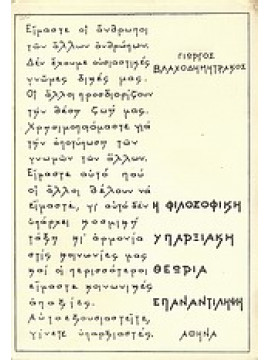 Είμαστε οἱ ἄνθρωποι
τῶν ἄλλων ἀνθρώπων.
Δέν ἔχουμε οὐσιαστικές
γνῶμες δικές μας.
Οἱ ἄλλοι προσδιορίζουν
τήν θέση ζωή μας.
Χρησιμοποιόμαστε γιά
τήν ἀποτύπωση τῶν
γνωμῶν τῶν ἄλλων.
Είμαστε αὐτό πού
οἱ ἄλλοι θέλουν νά
εἴμαστε, γι' αὐτό δέν
ὑπάρχει κοσμική
τάξη κι' ἁρμονία
στίς κοινωνίες μας
καί οἱ περισσότεροι
εἴμαστε κοινωνικές
ἀπαξίες.
Αὐτοεξουσιαστεῖτε,
γίνετε ὑπαρξιαστές.
ΓΙΩΡΓΟΣ
ΒΛΑΧΟΔΗΜΗΤΡΑΚΟΣ
Η ΦΙΛΟΣΟΦΙΚΗ
ΥΠΑΡΞΙΑΚΗ
ΘΕΩΡΙΑ
ΕΠΑΝΑΝΤΙΛΗΨΗ
ΑΘΗΝΑ